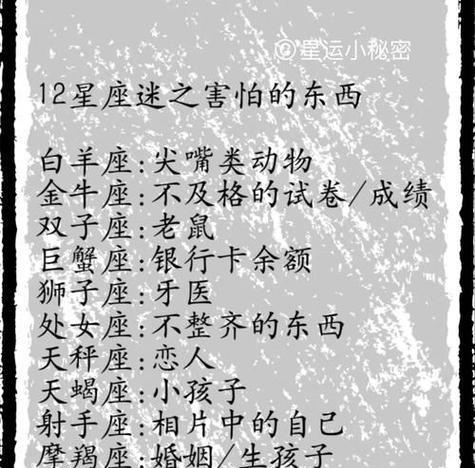 @星运小秘密
12星座迷之害怕的东西
白羊座:尖嘴类动物
金牛座:不及格的试卷/成绩
双子座:老鼠
巨蟹座:银行卡余额
狮子座:牙医
处女座:不整齐的东西
天秤座:恋人
天蝎座:小孩子
射手座:相片中的自己
摩羯座:婚姻/生孩子